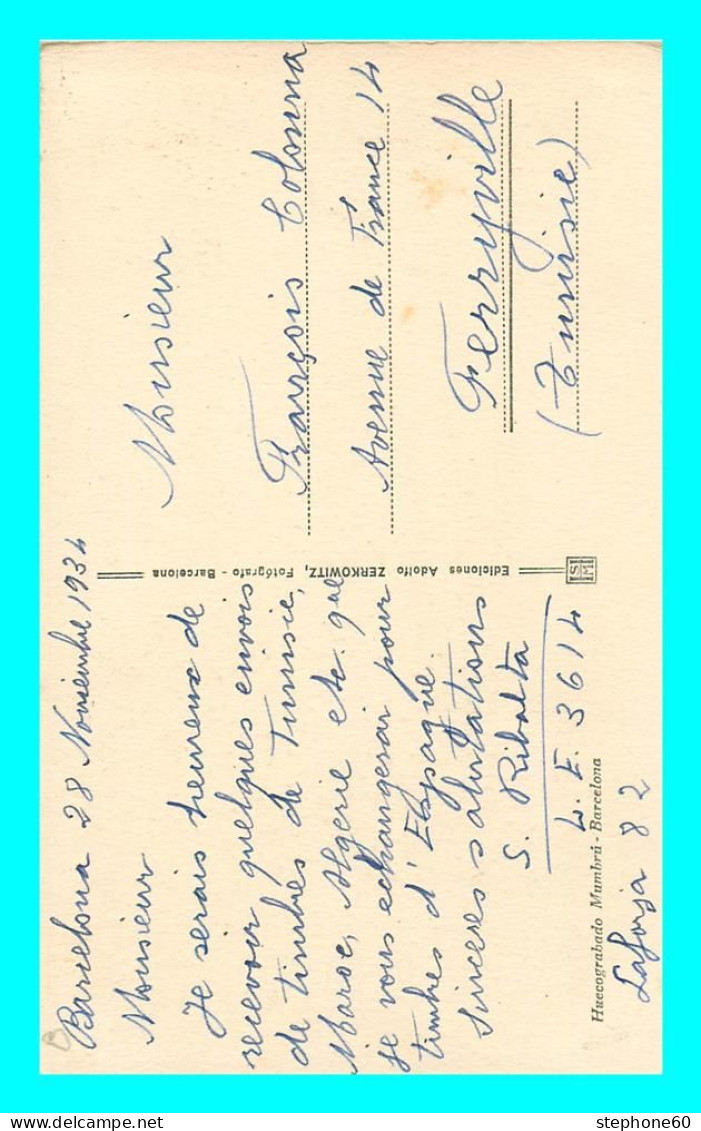 Barcelona 28 Noviembre 1934
Monsieur
Je serais heureux de
recevoir quelques envois
de timbres de Tunisie,
Maroc, Algérie etc. que
je vous echangerai pour
timbres d'Espagne.
Sinceres salutations
S. Ribalta
L. E. 3614
Huecograbado Mumbrú - Barcelona
Laforja 82
Ediciones Adolfo ZERKOWITZ, Fotógrafo - Barcelona
Monsieur
François Colonna
Avenue de France 14
Ferryville
(Tunisie)
stephone60